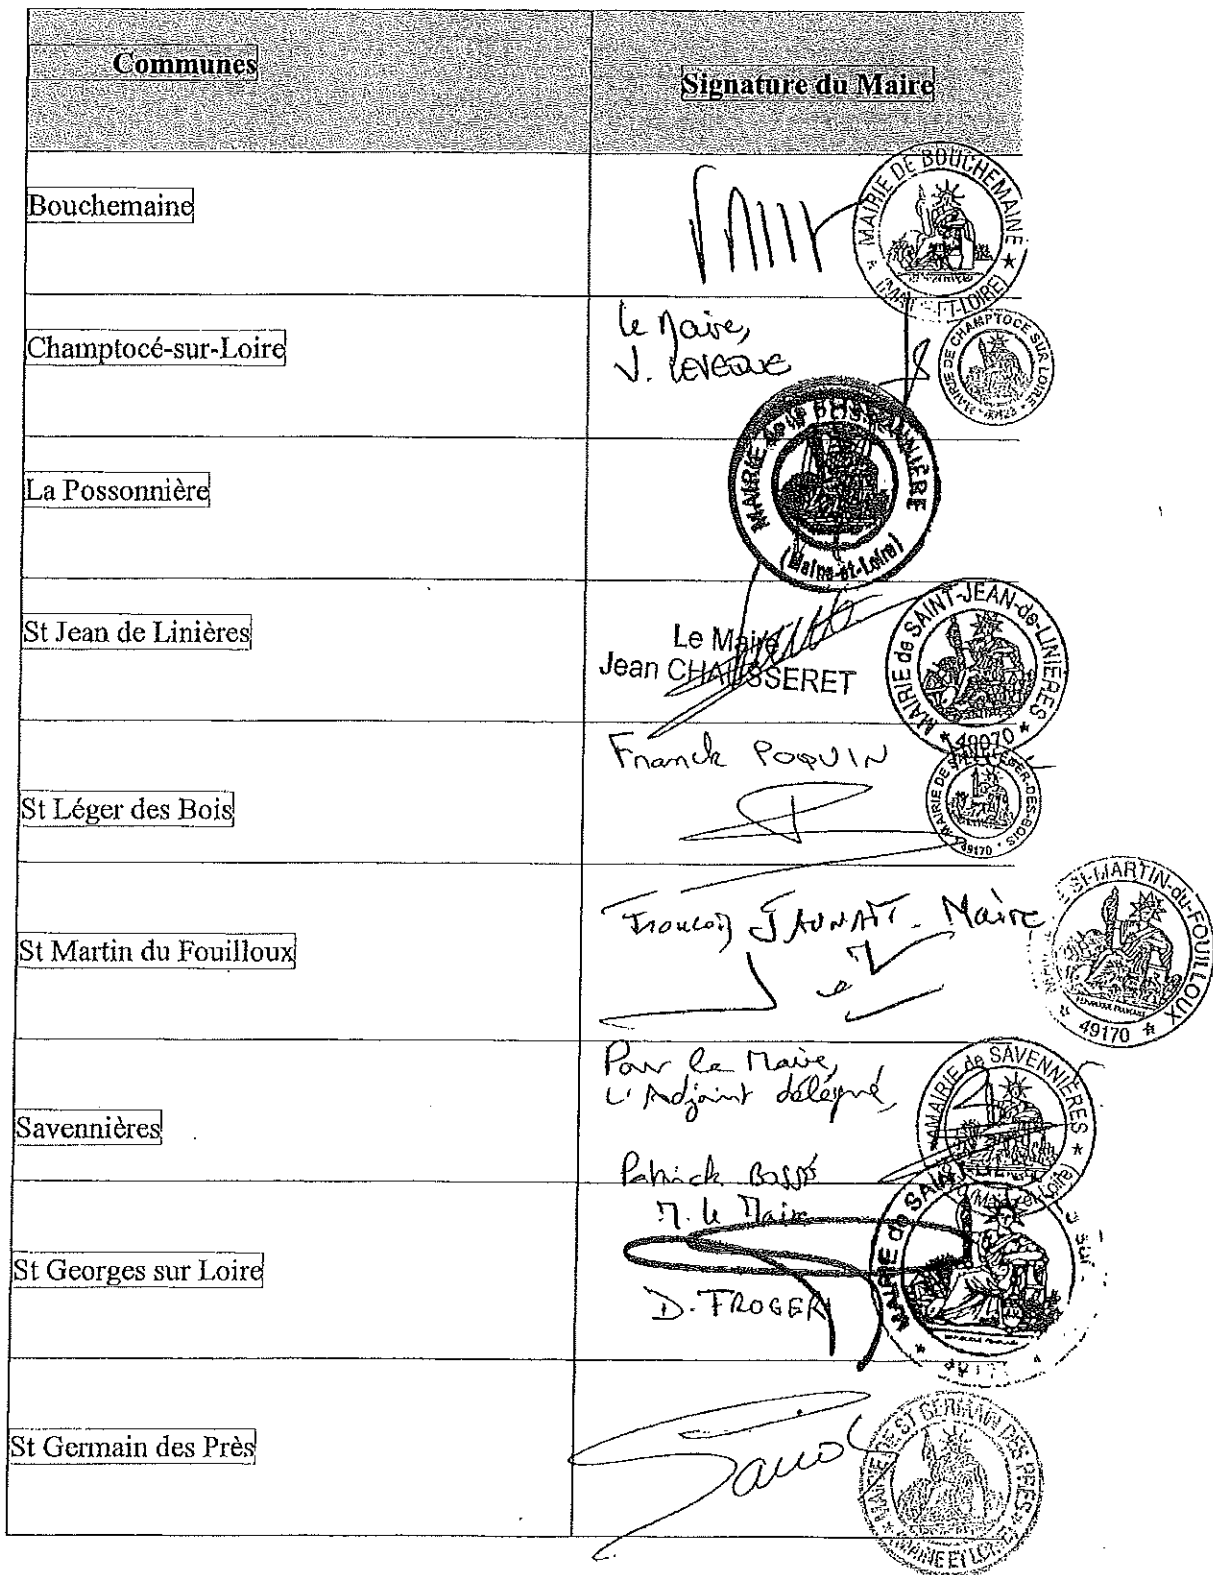 Communes
Signature du Maire
Bouchemaine
MAIRIE DE BOUCHEMAINE
Champtocé-sur-Loire
Le Maire,
V. LEVEQUE
MAIRIE DE CHAMPTOCE SUR LOIRE
La Possonnière
MAIRIE de la
(Maine-et-Loire)
St Jean de Linières
Le Maire
Jean CHAUSSERET
MAIRIE de SAINT-JEAN-de-LINIERES
* 49070 *
St Léger des Bois
Franck POQUIN
MAIRIE DE ST-LEGER-DES-BOIS
49170
St Martin du Fouilloux
François JAUNAIT. Maire
ST-MARTIN-du-FOUILLOUX
REPUBLIQUE FRANCAISE
* 49170 *
Savennières
Pour le Maire,
L'Adjoint délégué,
Patrick Bossé
MAIRIE de SAVENNIÈRES
(Maine et Loire)
St Georges sur Loire
M. le Maire
D. FROGER
MAIRIE de SAINT
sur
St Germain des Près
MAIRIE DE ST GERMAIN DES PRES
MAINE ET LOIRE